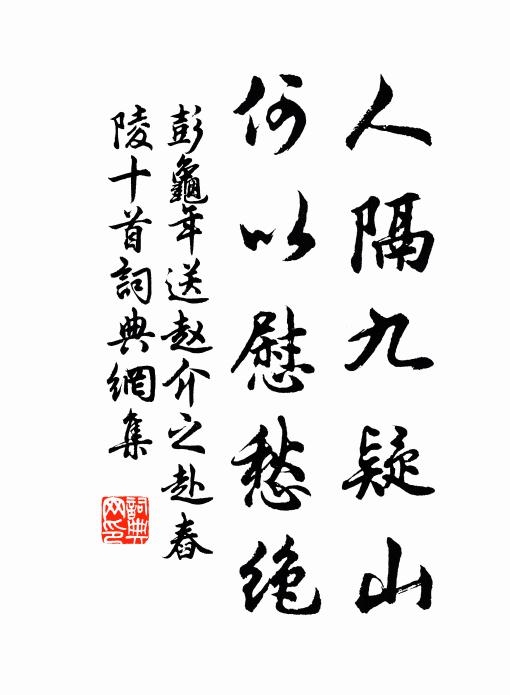 人隔九疑山
何以慰愁绝
彭龜年送赵介之赴舂
陵十首詞典網集
詞典
网印